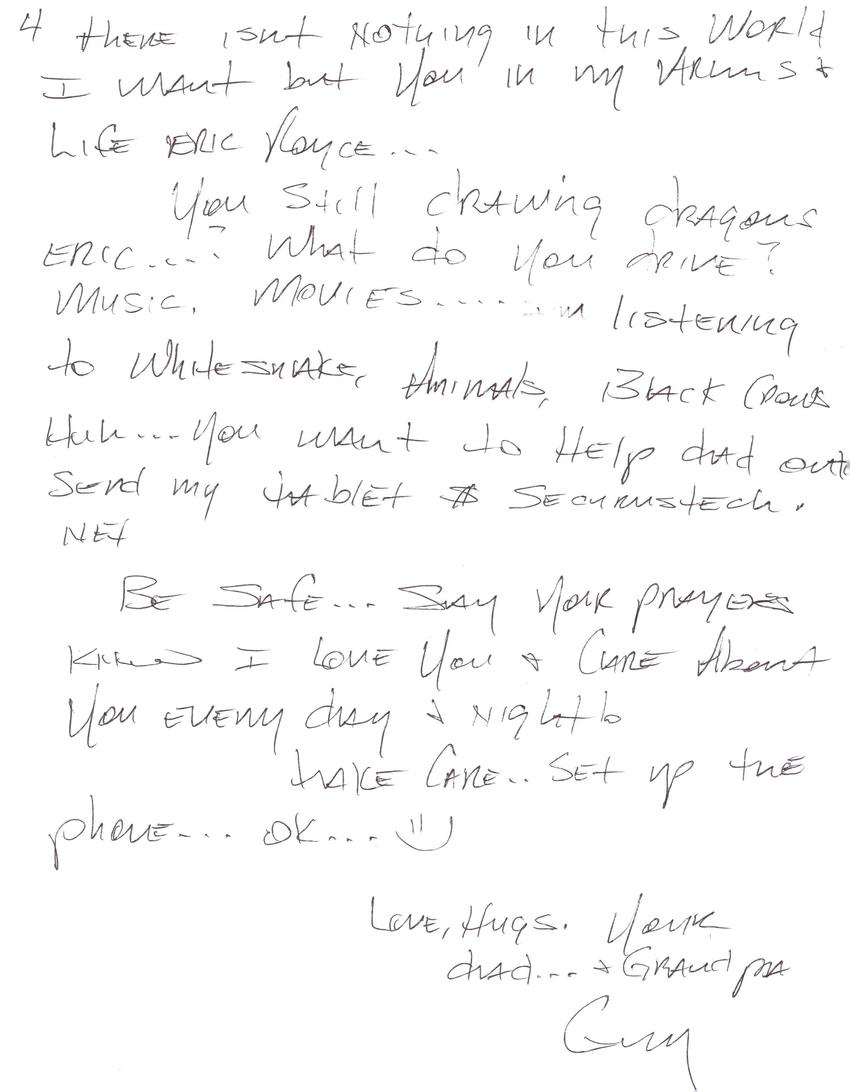 4 there isnt Nothing in this World
I want but You in my Arms +
Life ERIC Royce...
You Still drawing dragons
ERIC....? What do You drive?
Music, Movies........ listening
to Whitesnake, Animals, Black Crows
Huh...You want to Help dad out
Send my tablet $ Securustech.
NET
Be Safe... Say Your prayers
Know I Love You + Care About
You every day + Night
take Care.. Set up the
phone... OK...
Love, Hugs. Your
dad... + Grandpa
Guy